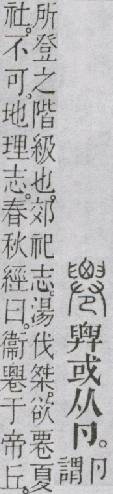 䙴或从卩。卩
謂
所登之階級也。郊祀志。湯伐桀。欲䙴夏
社。不可。地理志。春秋經曰。衞䙴于帝丘。